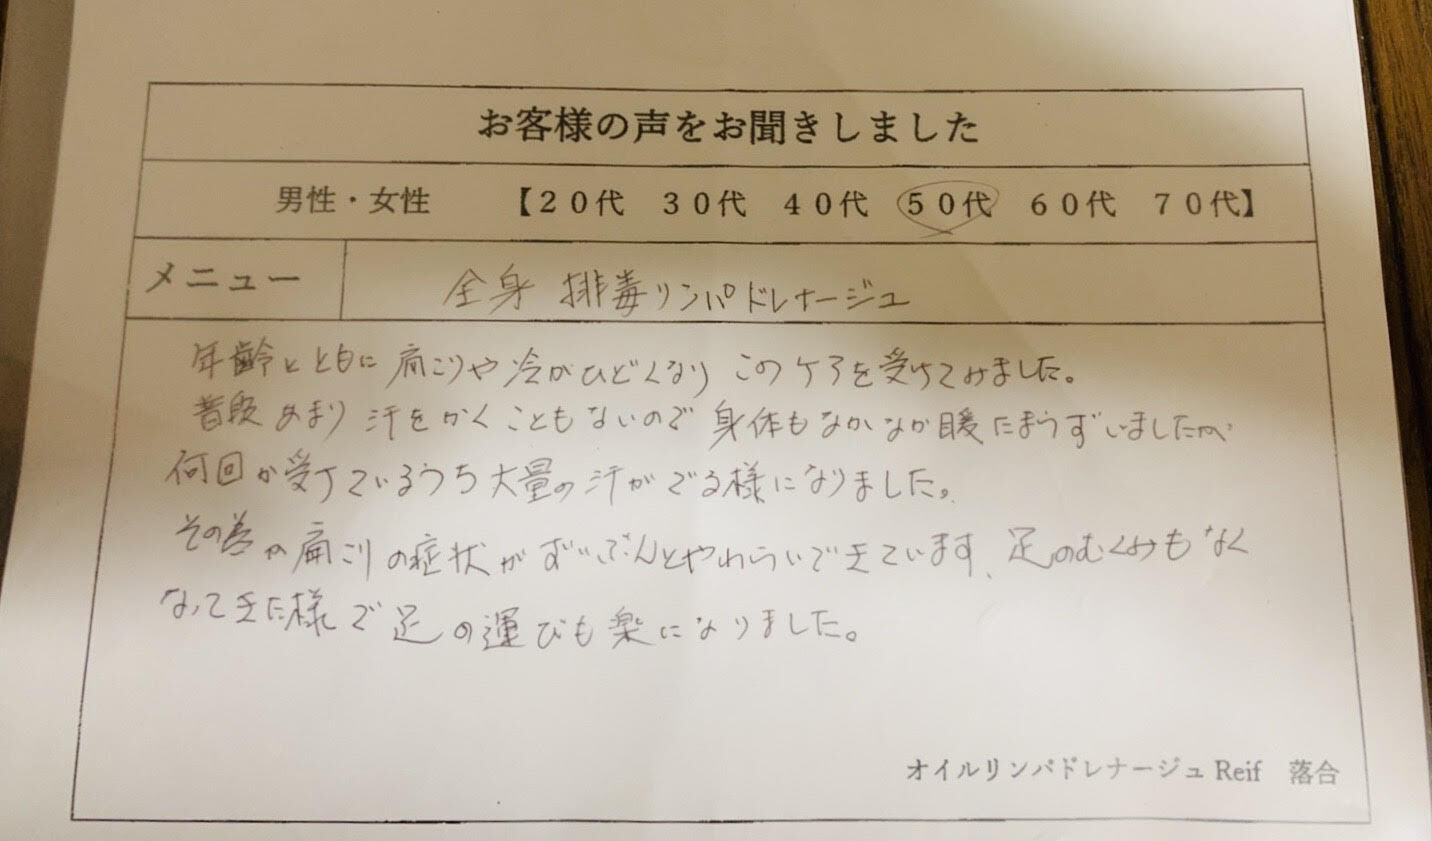 お客様の声をお聞きしました
男性・女性 【20代 30代 40代 50代 60代 70代】
メニュー 全身 排毒リンパドレナージュ
年齢とともに肩こりや冷がひどくなり このケアを受けてみました。
普段あまり汗をかくこともないので 身体もなかなか暖たまらずいましたが
何回か受けているうち大量の汗がでる様になりました。
その 肩こりの症状がずいぶんとやわらいできています、足のむくみもなく
なってきた様で足の運びも楽になりました。
オイルリンパドレナージュ Reif 落合